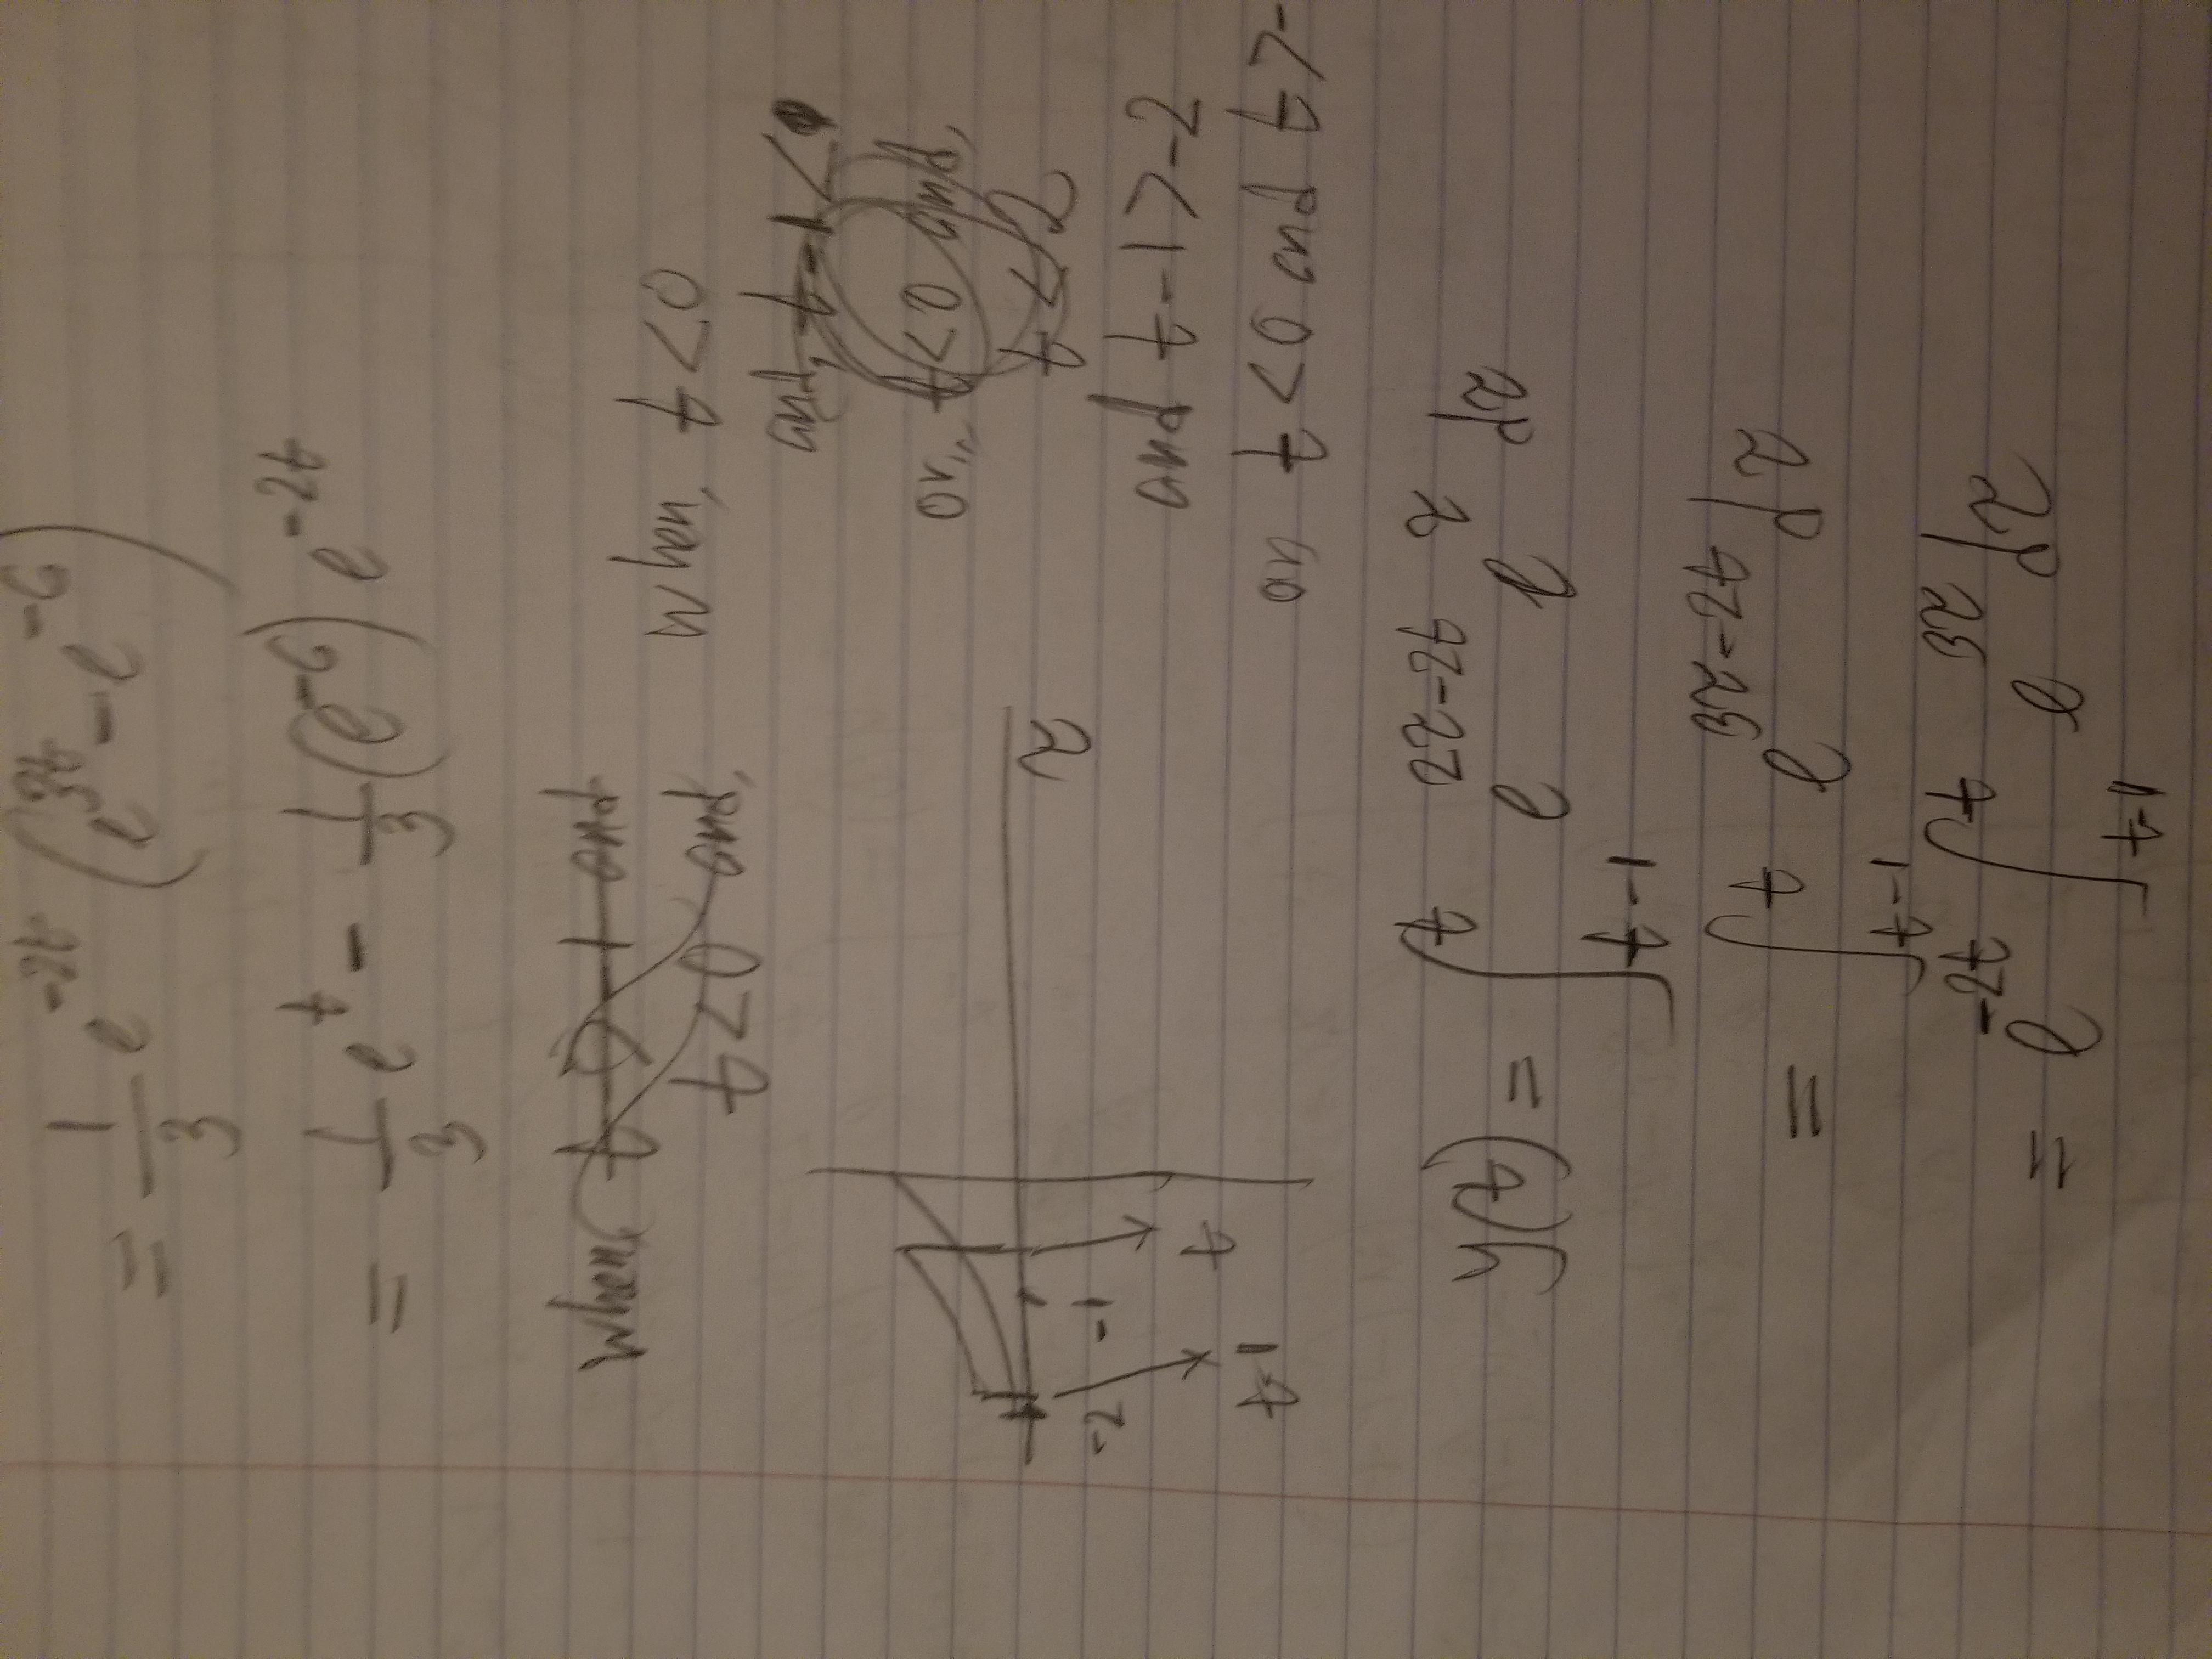 = 1/3 e^{-2t} (e^{3t} - e^{-6})
= 1/3 e^{t} - 1/3 (e^{-6}) e^{-2t}
when, t > -1 and
t < 0 and,
when, t < 0
and, t - 1 <
or,, t < 0 and,
t < 2
and t - 1 > -2
t < 0 and t > -
τ
-2 -1
t
t-1
y(t) = ∫_{t-1}^{t} e^{2τ-2t} e^{τ} dτ
= ∫_{t-1}^{t} e^{3τ-2t} dτ
= e^{-2t} ∫_{t-1}^{t} e^{3τ} dτ